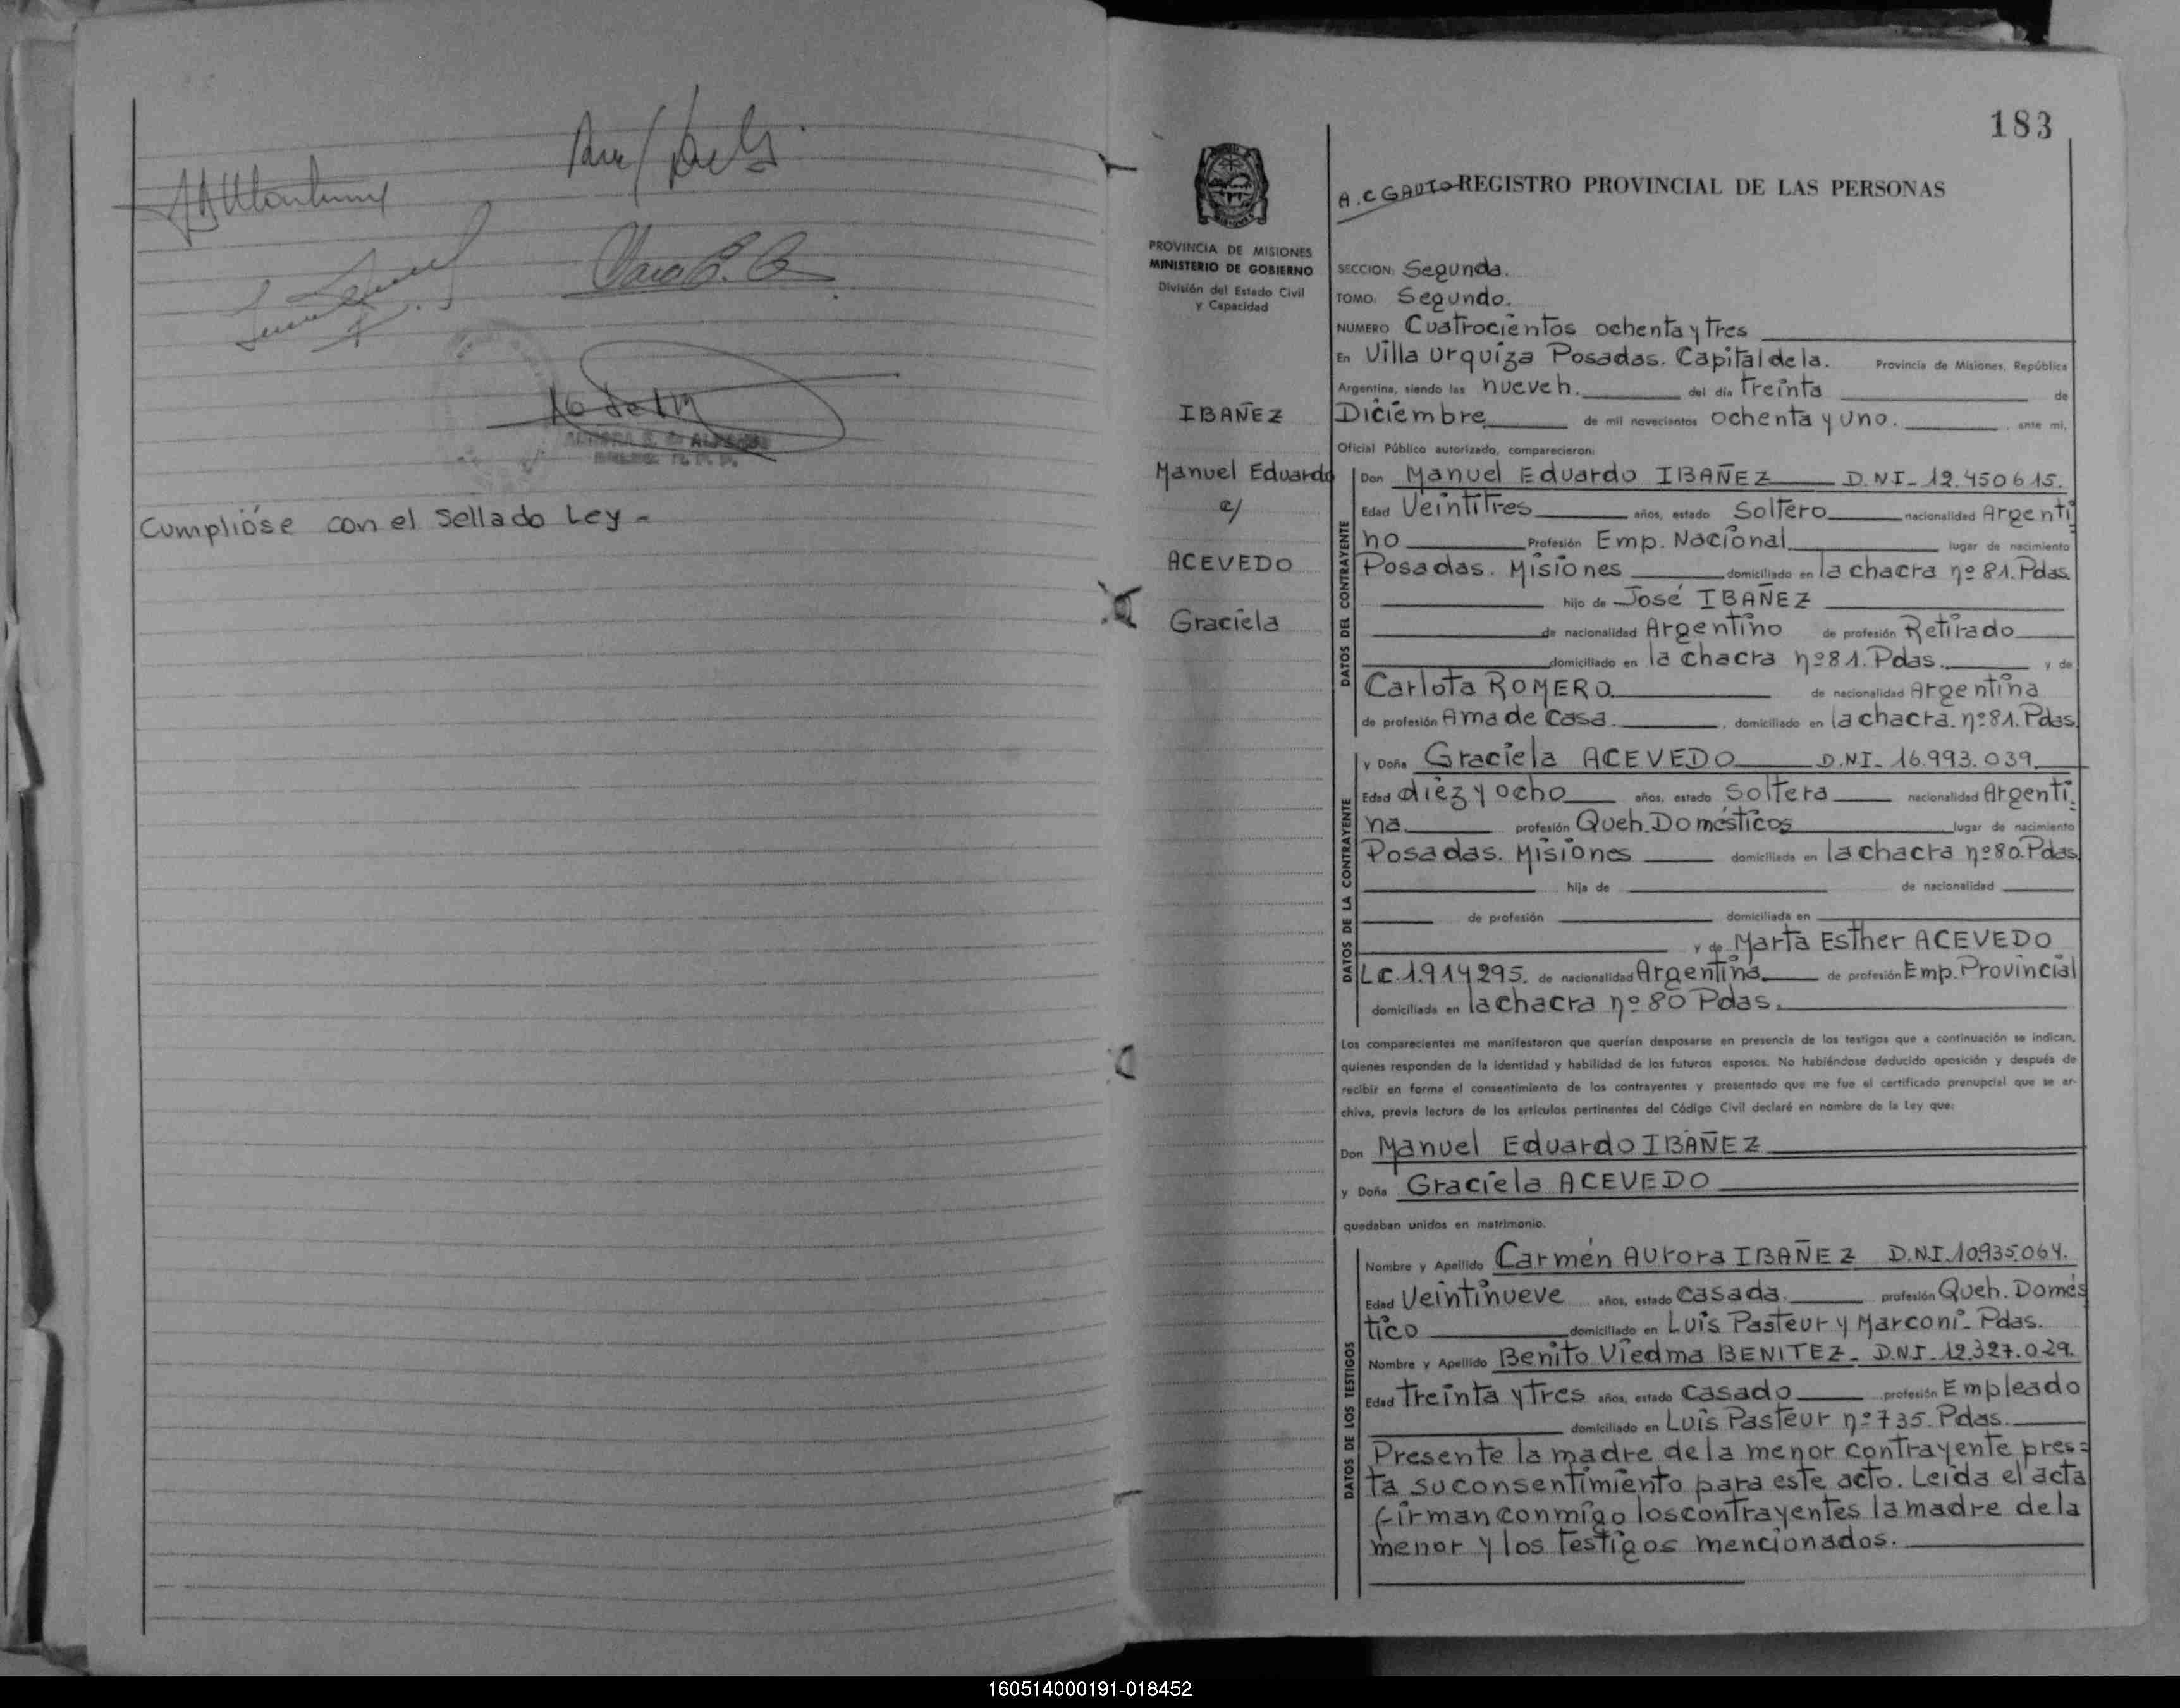 Cumplióse con el Sellado Ley -
183
A.C GAUTO REGISTRO PROVINCIAL DE LAS PERSONAS
PROVINCIA DE MISIONES
MINISTERIO DE GOBIERNO
División del Estado Civil
y Capacidad
IBAÑEZ
Manuel Eduardo
c/
ACEVEDO
Graciela
SECCION: Segunda.
TOMO: Segundo.
NUMERO Cuatrocientos ochenta y tres
En Villa Urquiza Posadas. Capital de la. Provincia de Misiones, República
Argentina, siendo las nueve h. del día treinta de
Diciembre de mil novecientos ochenta y uno. , ante mí,
Oficial Público autorizado, comparecieron:
DATOS DEL CONTRAYENTE
Don Manuel Eduardo IBAÑEZ D.N.I- 12.450615.
Edad Veintitres años, estado Soltero nacionalidad Argenti
no Profesión Emp. Nacional lugar de nacimiento
Posadas. Misiones domiciliado en la chacra nº 81. Pdas.
hijo de José IBAÑEZ
de nacionalidad Argentino de profesión Retirado
domiciliado en la chacra nº 81. Pdas. y de
Carlota ROMERO. de nacionalidad Argentina
de profesión Ama de Casa. , domiciliado en la chacra. nº 81. Pdas.
DATOS DE LA CONTRAYENTE
y Doña Graciela ACEVEDO D.N.I- 16.993.039
Edad diez y ocho años, estado Soltera nacionalidad Argenti.
na profesión Queh. Domésticos lugar de nacimiento
Posadas. Misiones domiciliada en la chacra nº 80. Pdas
hija de de nacionalidad
de profesión domiciliada en
y de Marta Esther ACEVEDO
L.C. 1.914295. de nacionalidad Argentina de profesión Emp. Provincial
domiciliada en la chacra nº 80 Pdas.
Los comparecientes me manifestaron que querían desposarse en presencia de los testigos que a continuación se indican,
quienes responden de la identidad y habilidad de los futuros esposos. No habiéndose deducido oposición y después de
recibir en forma el consentimiento de los contrayentes y presentado que me fue el certificado prenupcial que se ar-
chiva, previa lectura de los artículos pertinentes del Código Civil declaré en nombre de la Ley que:
Don Manuel Eduardo IBAÑEZ
y Doña Graciela ACEVEDO
quedaban unidos en matrimonio.
DATOS DE LOS TESTIGOS
Nombre y Apellido Carmen Aurora IBAÑEZ D.N.I. 10935.064.
Edad Veintinueve años, estado Casada. profesión Queh. Domés
tico domiciliado en Luis Pasteur y Marconi- Pdas.
Nombre y Apellido Benito Viedma BENITEZ- D.N.I- 12.327.029.
Edad treinta y tres años, estado Casado profesión Empleado
domiciliado en Luis Pasteur nº 735. Pdas.
Presente la madre de la menor contrayente pres=
ta su consentimiento para este acto. Leída el acta
firman conmigo los contrayentes la madre de la
menor y los testigos mencionados.
160514000191-018452